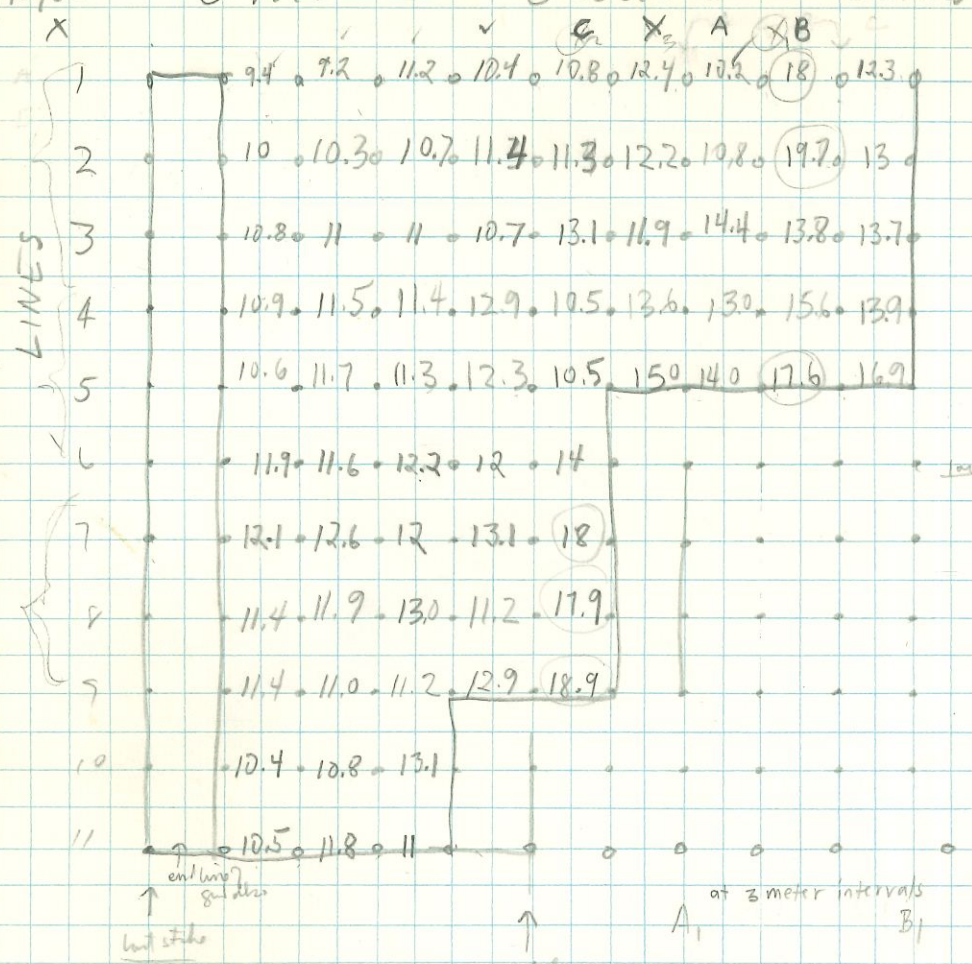 X ✓ C X3 A X1 B
1 9.4 9.2 11.2 10.4 10.8 12.4 10.2 18 12.3
2 10 10.3 10.7 11.4 11.3 12.2 10.8 19.7 13
3 10.8 11 11 10.7 13.1 11.9 14.4 13.8 13.7
LINES
4 10.9 11.5 11.4 12.9 10.5 13.6 13.0 15.6 13.9
5 10.6 11.7 11.3 12.3 10.5 150 140 17.6 16.9
6 11.9 11.6 12.2 12 14
7 12.1 12.6 12 13.1 18
8 11.4 11.9 13.0 11.2 17.9
9 11.4 11.0 11.2 12.9 18.9
10 10.4 10.8 13.1
11 10.5 11.8 11
at 3 meter intervals
A1 B1